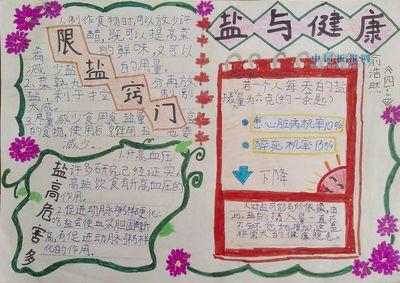 1.制作食物时,可以放少许
醋,既可以提高菜
肴的鲜味,又可以
减少盐的用量。
2.菜熟
限盐窍门
3.尽量减少食用食盐量
的食物,使用后
减少。
盐高危害多
1.升高血压:
许多研究已经证实
高盐饮食有升高血压的
作用。
2.促进动脉粥样硬化:
高盐会使血浆胆固醇升
高,有促进动脉粥样
化的作用。
盐与健康
中国板报网
《四.三》
若一个人每天的盐
摄量为六克(约一茶匙)
患心脏病机率10%
猝死机率13%
下降
人对盐可能有所依赖,由
此盐的摄入量一直在
不知不觉地增加这是
非常大的健康隐患。